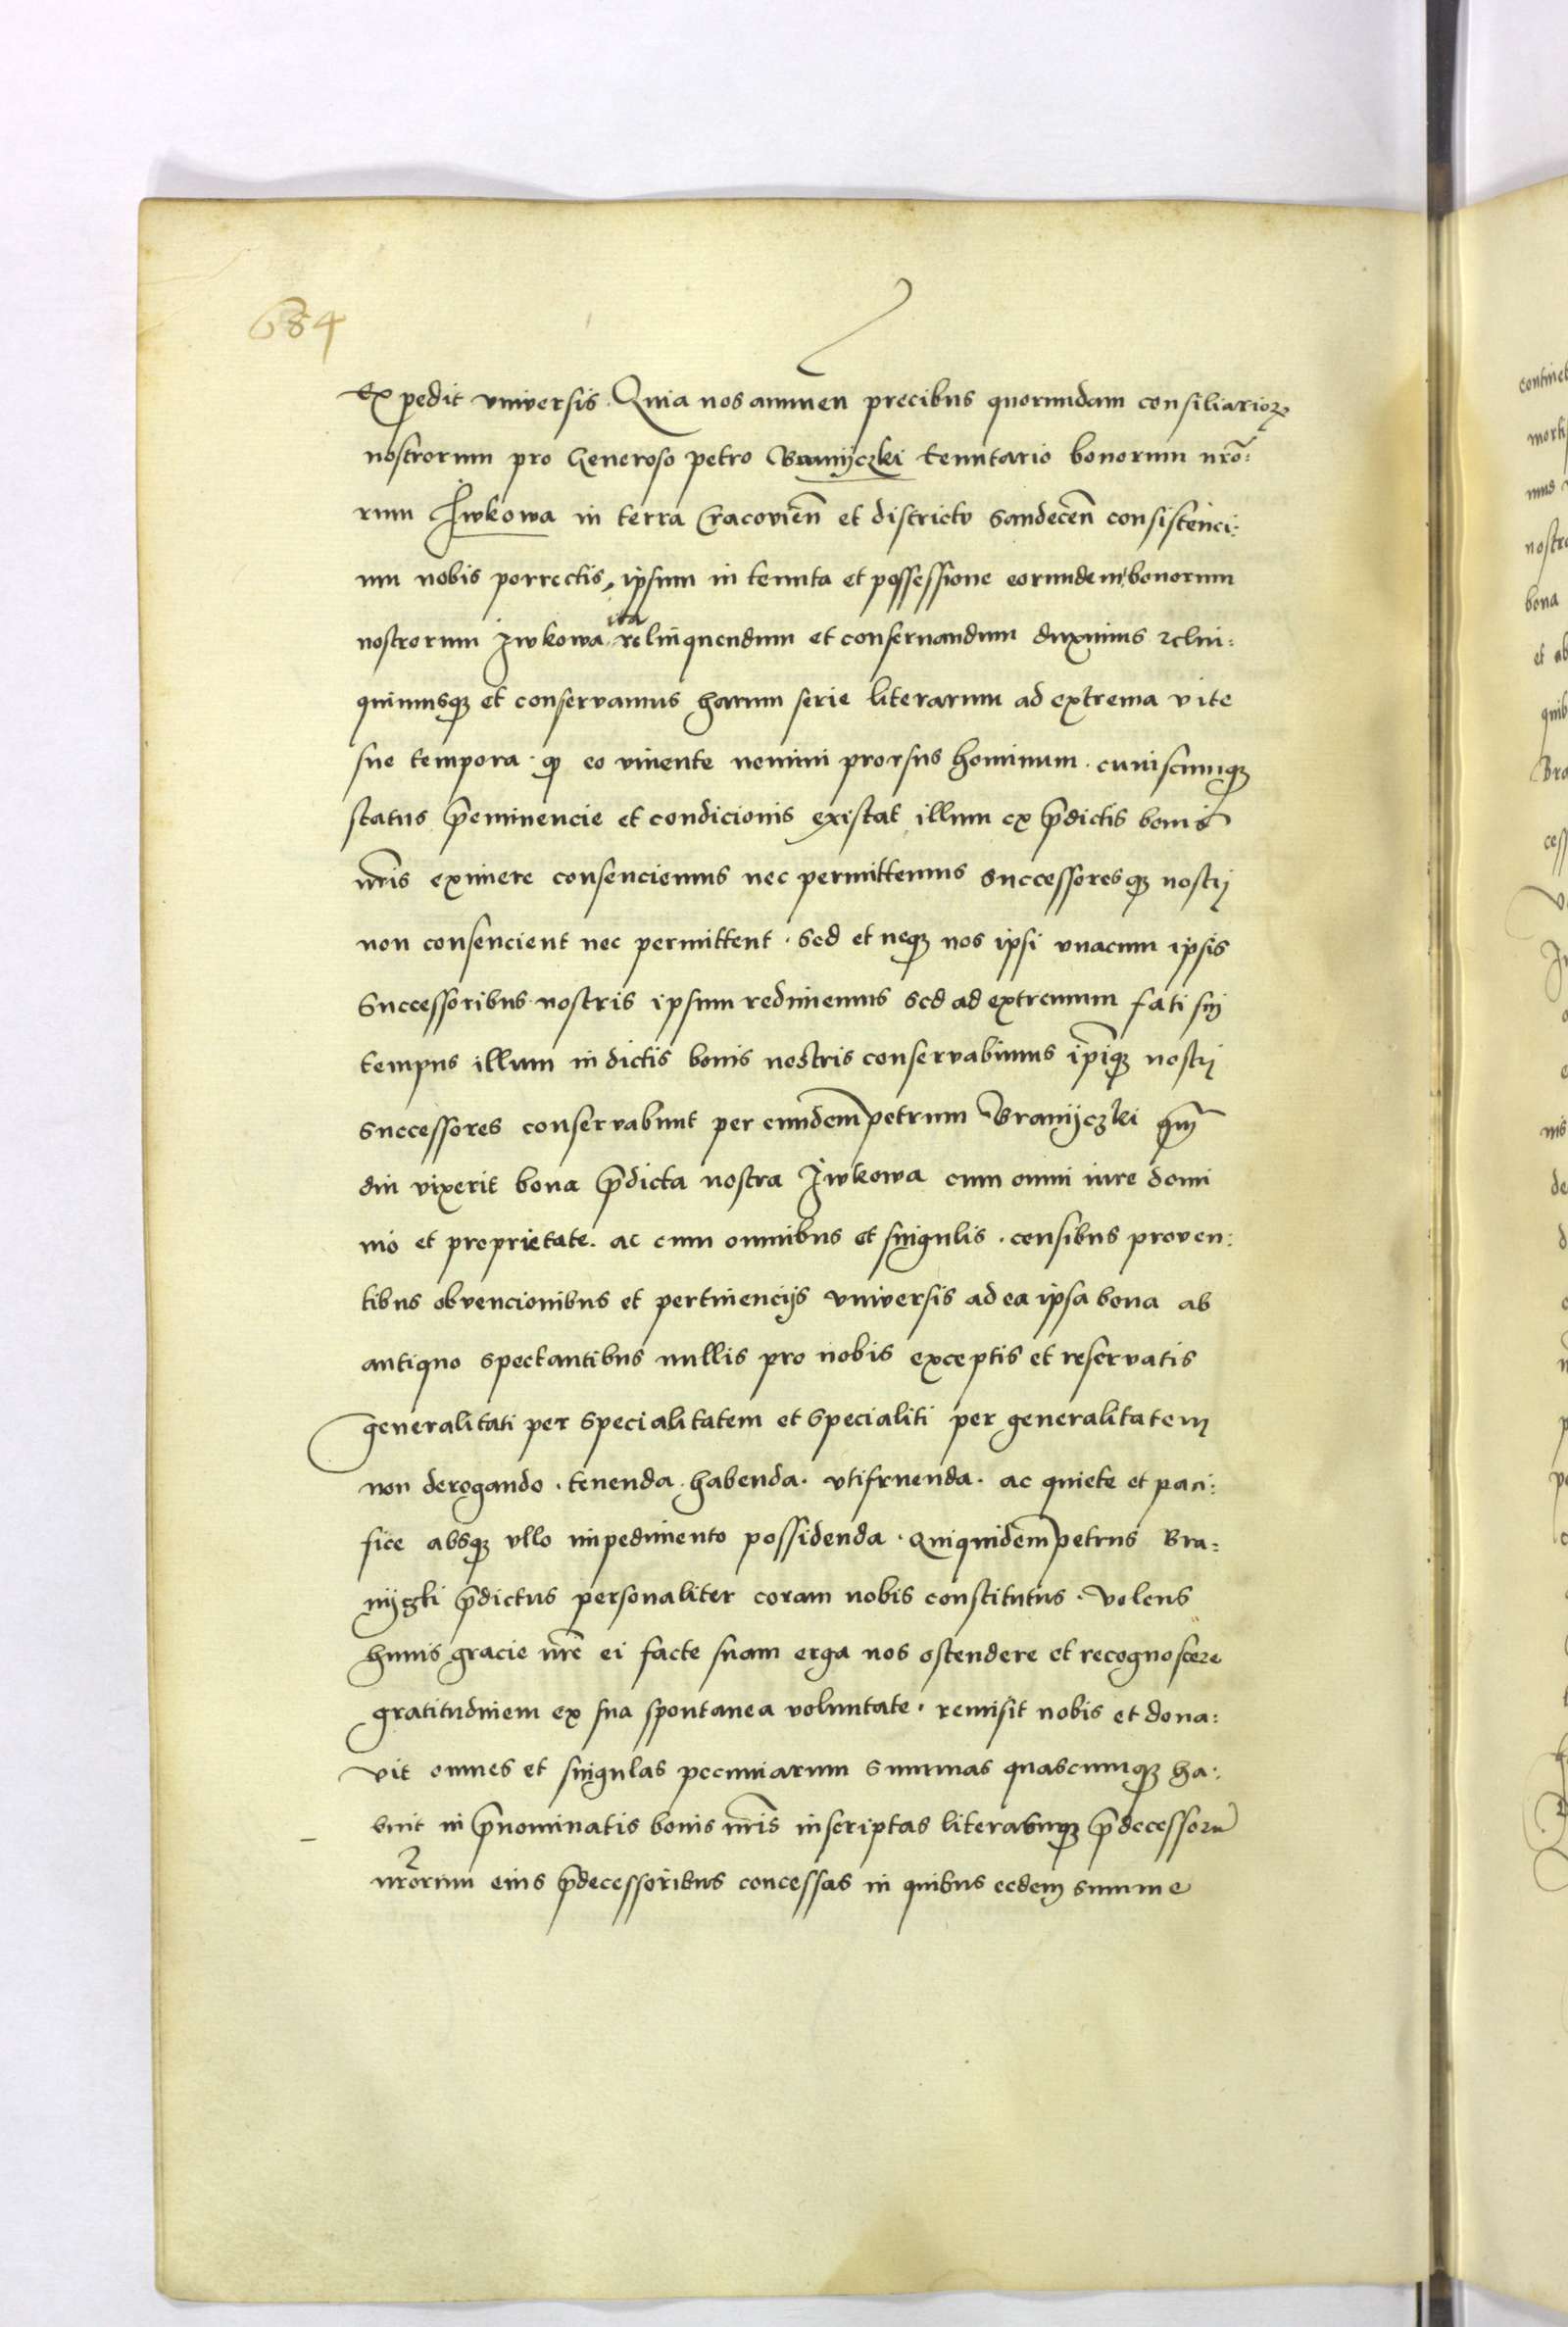 684
Expedit vniversis. Quia nos annuen precibus quorundam consiliarioꝝ
nostrorum pro Generoso petro Branijczki tenutario bonorum nr̃o:
rum Iwkowa in terra Cracovien̄ et districtu Sandecen̄ consistenci:
um nobis porrectis, ipsum in tenuta et possessione eorundem bonorum
nostrorum Iwkowa ita relinquendum et conseruandum duximus relin:
quimusqꝫ et conservamus harum serie literarum ad extrema vite
sue tempora. ꝙ eo viuente nemini prorsus hominum. cuiuscumqꝫ
status p̄eminencie et condicionis existat illum ex p̄dictis bonis
nr̄is eximere consenciemus nec permittemus Successoresqꝫ nostrj
non consencient nec permittent. Sed et neqꝫ nos ipsi vnacum ipsis
Successoribus nostris ipsum redimemus sed ad extremum fati sui
tempus illum in dictis bonis nostris conservabimus ip̄iqꝫ nostrj
successores conservabunt per eundem petrum Branijczki qm̄
diu vixerit bona p̄dicta nostra Iwkowa cum omni iure domi
nio et proprietate. ac cum omnibus et singulis. censibus proven:
tibus obvencionibus et pertinencijs vniversis ad ea ipsa bona ab
antiquo spectantibus nullis pro nobis exceptis et reservatis
generalitati per specialitatem et specialiti per generalitatem
non derogando. tenenda. habenda. vtifruenda. ac quiete et paci:
fice absqꝫ vllo impedimento possidenda. Quiquidem petrus Bra:
nijczki p̄dictus personaliter coram nobis constitutus. volens
huius gracie nr̄e ei facte suam erga nos ostendere et recognoscere
gratitudinem ex sua spontanea voluntate. remisit nobis et dona:
vit omnes et singulas pecuniarum summas quascumqꝫ ha:
buit in p̄nominatis bonis nr̄is inscriptas literasqꝫ p̄decessorum
nr̄orum eius p̄decessoribus concessas in quibus eedem summe